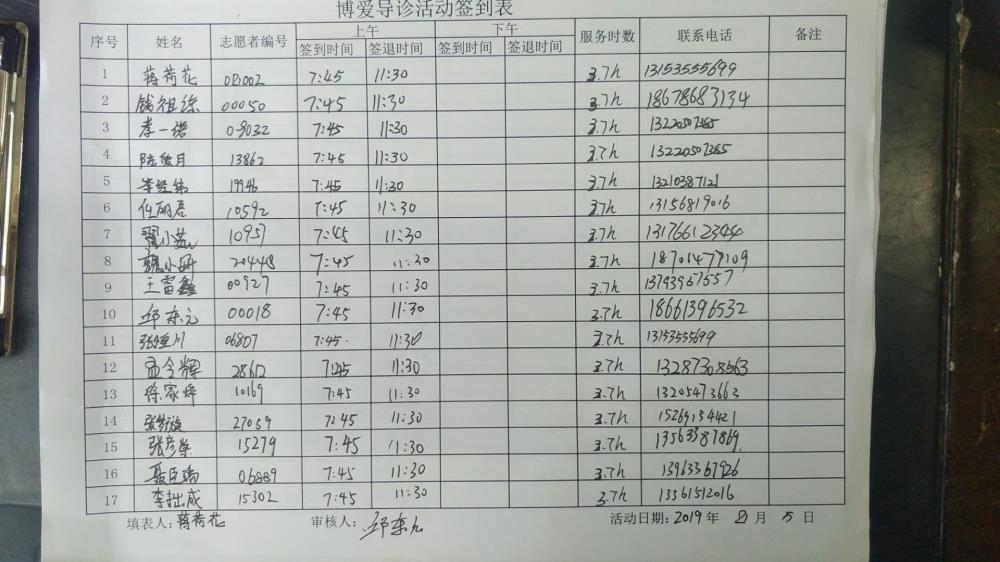 博爱导诊活动签到表
序号 姓名 志愿者编号 上午 下午 服务时数 联系电话 备注
签到时间 签退时间 签到时间 签退时间
1 蒋荷花 00002 7:45 11:30 3.7h 13153555699
2 钱祖 00050 7:45 11:30 3.7h 18678683134
3 李一 09032 7:45 11:30 3.7h 13220507385
4 月 13862 7:45 11:30 3.7h 13220507385
5 李经纬 19946 7:45 11:30 3.7h 13210387121
6 任丽君 10592 7:45 11:30 3.7h 13156819016
7 翟小 10957 7:45 11:30 3.7h 13176612344
8 魏小丹 20448 7:45 11:30 3.7h
9 王雷鑫 00927 7:45 11:30 3.7h 13793967557
10 邱东元 00018 7:45 11:30 3.7h 18661396532
11 张恒川 06807 7:45 11:30 3.7h 13153555699
12 孟令辉 28612 7:45 11:30 3.7h 13287308563
13 徐家烨 10169 7:45 11:30 3.7h 13205473663
14 张 27059 7:45 11:30 3.7h 15269134421
15 张彦 15279 7:45 11:30 3.7h 13563387869
16 聂臣瑞 06889 7:45 11:30 3.7h 13963367926
17 李拙成 15302 7:45 11:30 3.7h 13361512016
填表人:蒋荷花 审核人: 邱东元 活动日期:2019年 月 5 日